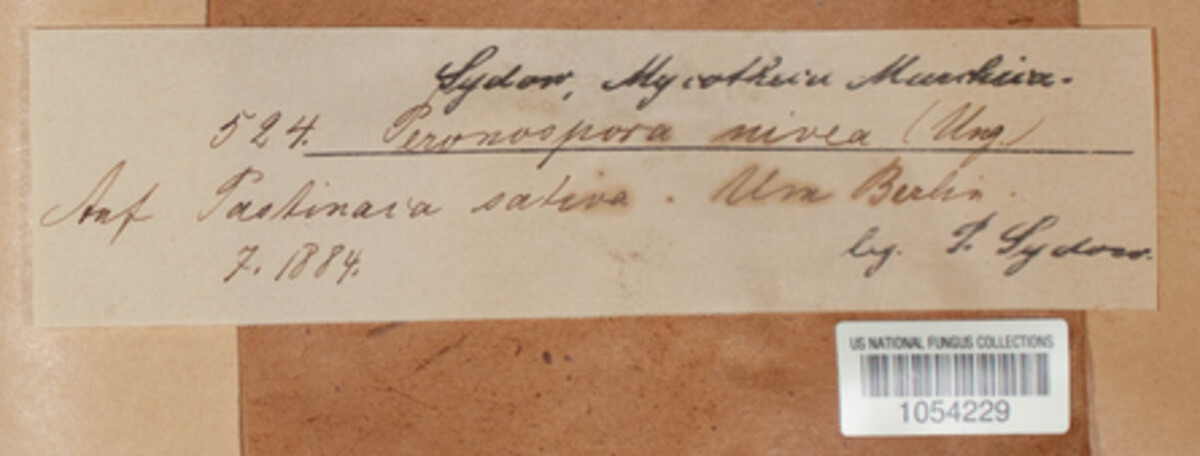 Sydow, Mycotheca Marchica.
524. Peronospora nivea (Ung.)
Auf Pastinaca sativa. Um Berlin.
7. 1884.
leg. P. Sydow.
US NATIONAL FUNGUS COLLECTIONS
1054229